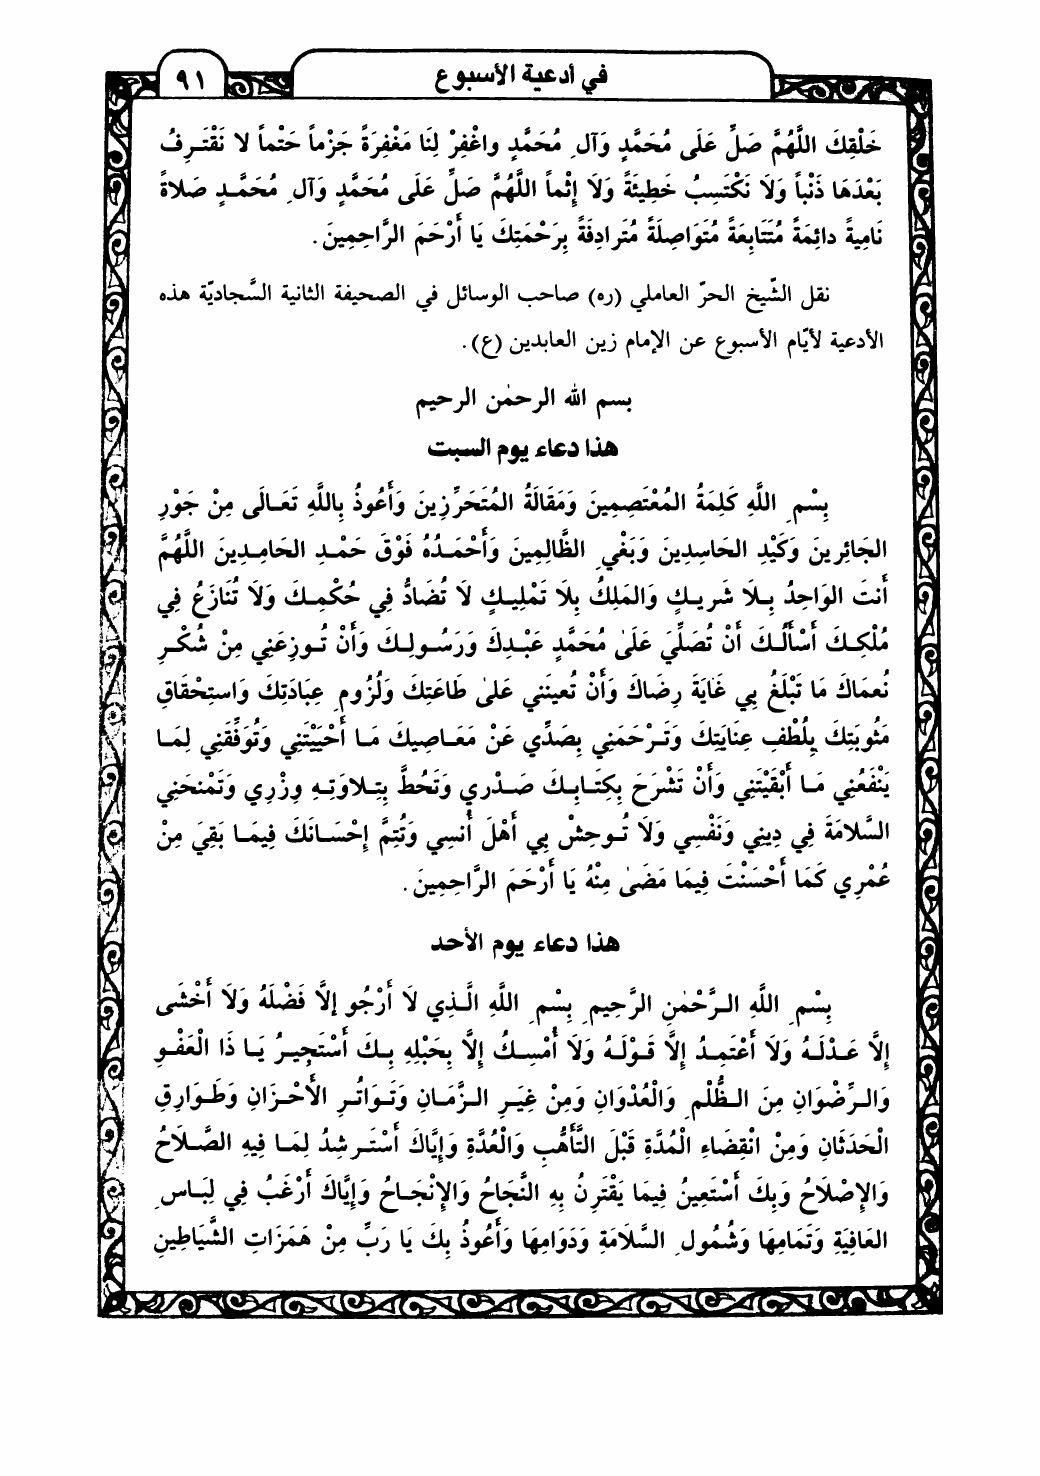 في أدعية الأسبوع
٩١
خَلْقِكَ اللَّهُمَّ صَلِّ عَلَى مُحَمَّدٍ وَآلِ مُحَمَّدٍ واغْفِرْ لِنَا مَغْفِرَةً جَزْماً حَتْماً لا نَقْتَرِفُ
بَعْدَهَا ذَنْباً وَلَا نَكْتَسِبُ خَطِيئَةً وَلَا إِثْماً اللَّهُمَّ صَلِّ عَلَى مُحَمَّدٍ وَآلِ مُحَمَّدٍ صَلاةً
نَامِيةً دائِمَةً مُتَتَابِعَةً مُتَوَاصِلَةً مُتَرادِفَةً بِرَحْمَتِكَ يَا أَرْحَمَ الرَّاحِمِينَ.
نقل الشّيخ الحرّ العاملي (ره) صاحب الوسائل في الصحيفة الثانية السَّجاديّة هذه
الأدعية لأيّام الأسبوع عن الإمام زين العابدين (ع).
بسم الله الرحمٰن الرحيم
هذا دعاء يوم السبت
بِسْمِ اللَّهِ كَلِمَةُ المُعْتَصِمِينَ وَمَقَالَةُ المُتَحَرِّزِينَ وَأَعُوذُ بِاللَّهِ تَعَالَى مِنْ جَوْرِ
الجَائِرِينَ وَكَيْدِ الحَاسِدِينَ وَبَغْيِ الظَّالِمِينَ وَأَحْمَدُهُ فَوْقَ حَمْدِ الحَامِدِينَ اللَّهُمَّ
أَنتَ الوَاحِدُ بِلَا شَرِيكٍ وَالمَلِكُ بِلَا تَمْلِيكٍ لَا تُضَادُّ فِي حُكْمِكَ وَلَا تُنَازَعُ فِي
مُلْكِكَ أَسْأَلُكَ أَنْ تُصَلِّيَ عَلَىٰ مُحَمَّدٍ عَبْدِكَ وَرَسُولِكَ وَأَنْ تُوزِعَنِي مِنْ شُكْرِ
نُعمَاكَ مَا تَبْلُغُ بِي غَايَةَ رِضَاكَ وَأَنْ تُعينَني عَلىٰ طَاعَتِكَ وَلُزُومِ عِبَادَتِكَ وَاستِحْقَاقِ
مَثُوبَتِكَ بِلُطْفِ عِنَايَتِكَ وَتَرْحَمَنِي بِصَدِّي عَنْ مَعَاصِيكَ مَا أَحْيَيْتَنِي وَتُوَفِّقَنِي لِمَا
يَنْفَعُنِي مَا أَبْقَيْتَنِي وَأَنْ تَشْرَحَ بِكِتَابِكَ صَدْرِي وَتَحُطَّ بِتِلاوَتِهِ وِزْرِي وَتَمْنَحَنِي
السَّلامَةَ فِي دِينِي وَنَفْسِي وَلَا تُوحِشْ بِي أَهْلَ أُنسِي وَتُتِمَّ إِحْسَانَكَ فِيمَا بَقِيَ مِنْ
عُمْرِي كَمَا أَحْسَنْتَ فِيمَا مَضَىٰ مِنْهُ يَا أَرْحَمَ الرَّاحِمِينَ.
هذا دعاء يوم الأحد
بِسْمِ اللَّهِ الرَّحْمٰنِ الرَّحِيمِ بِسْمِ اللَّهِ الَّذِي لَا أَرْجُو إِلَّا فَضْلَهُ وَلَا أَخْشَى
إِلَّا عَدْلَهُ وَلَا أَعْتَمِدُ إِلَّا قَوْلَهُ وَلَا أُمْسِكُ إِلَّا بِحَبْلِهِ بِكَ أَسْتَجِيرُ يَا ذَا الْعَفْوِ
وَالرِّضْوَانِ مِنَ الظُّلْمِ وَالْعُدْوَانِ وَمِنْ غِيَرِ الزَّمَانِ وَتَوَاتُرِ الأَحْزَانِ وَطَوَارِقِ
الْحَدَثَانِ وَمِنْ انْقِضَاءِ الْمُدَّةِ قَبْلَ التَّأَهُّبِ وَالْعُدَّةِ وَإِيَّاكَ أَسْتَرشِدُ لِمَا فِيهِ الصَّلَاحُ
وَالإِصْلَاحُ وَبِكَ أَسْتَعِينُ فِيمَا يَقْتَرِنُ بِهِ النَّجَاحُ وَالإِنْجَاحُ وَإِيَّاكَ أَرْغَبُ فِي لِبَاسِ
العَافِيَةِ وَتَمَامِهَا وَشُمُولِ السَّلَامَةِ وَدَوَامِهَا وَأَعُوذُ بِكَ يَا رَبِّ مِنْ هَمَزَاتِ الشَّيَاطِينِ